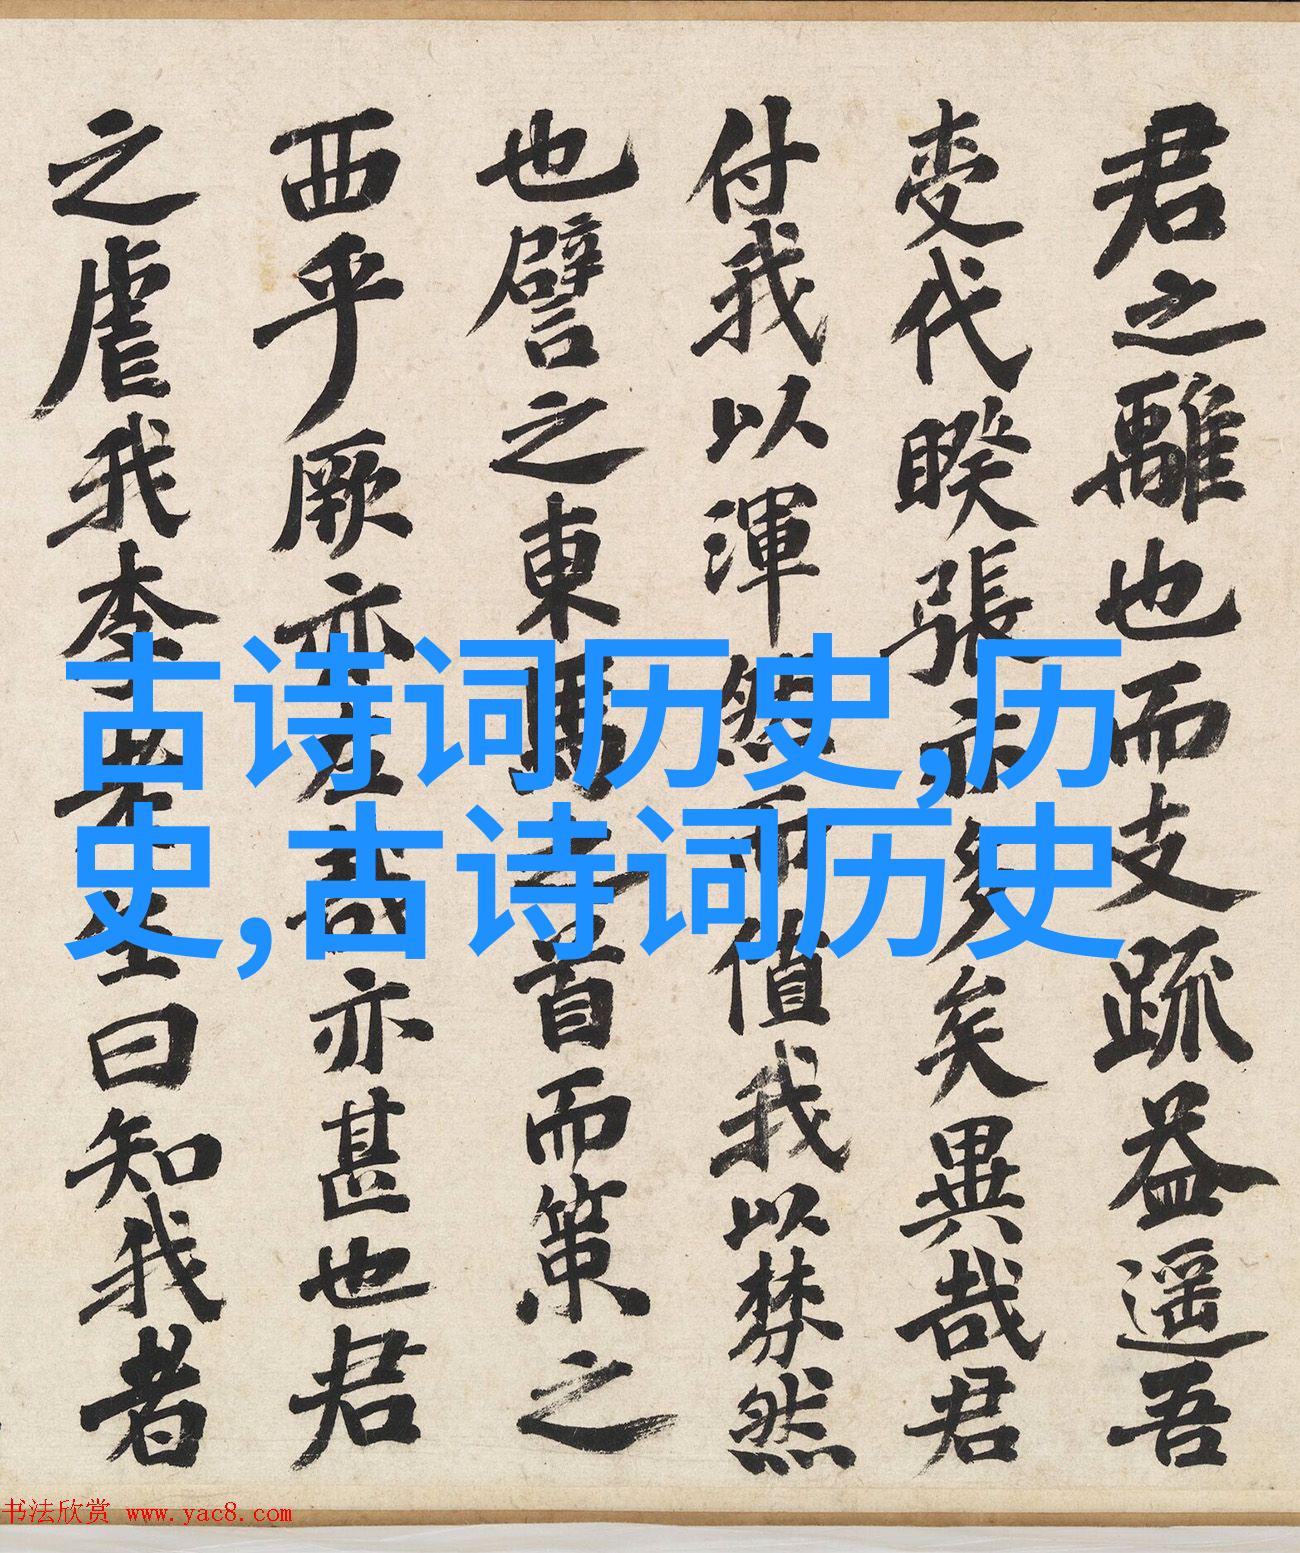 君之離也而支疏益遥吾
变代睽張亦多矣異哉君
付我以渾然而值我以棼然
也譬之東馬首而策之
西乎厥亦左哉亦甚也君
之虐我李先生曰知我者
古诗词历史,历
史,古诗词历史
书法欣赏 www.yac8.com